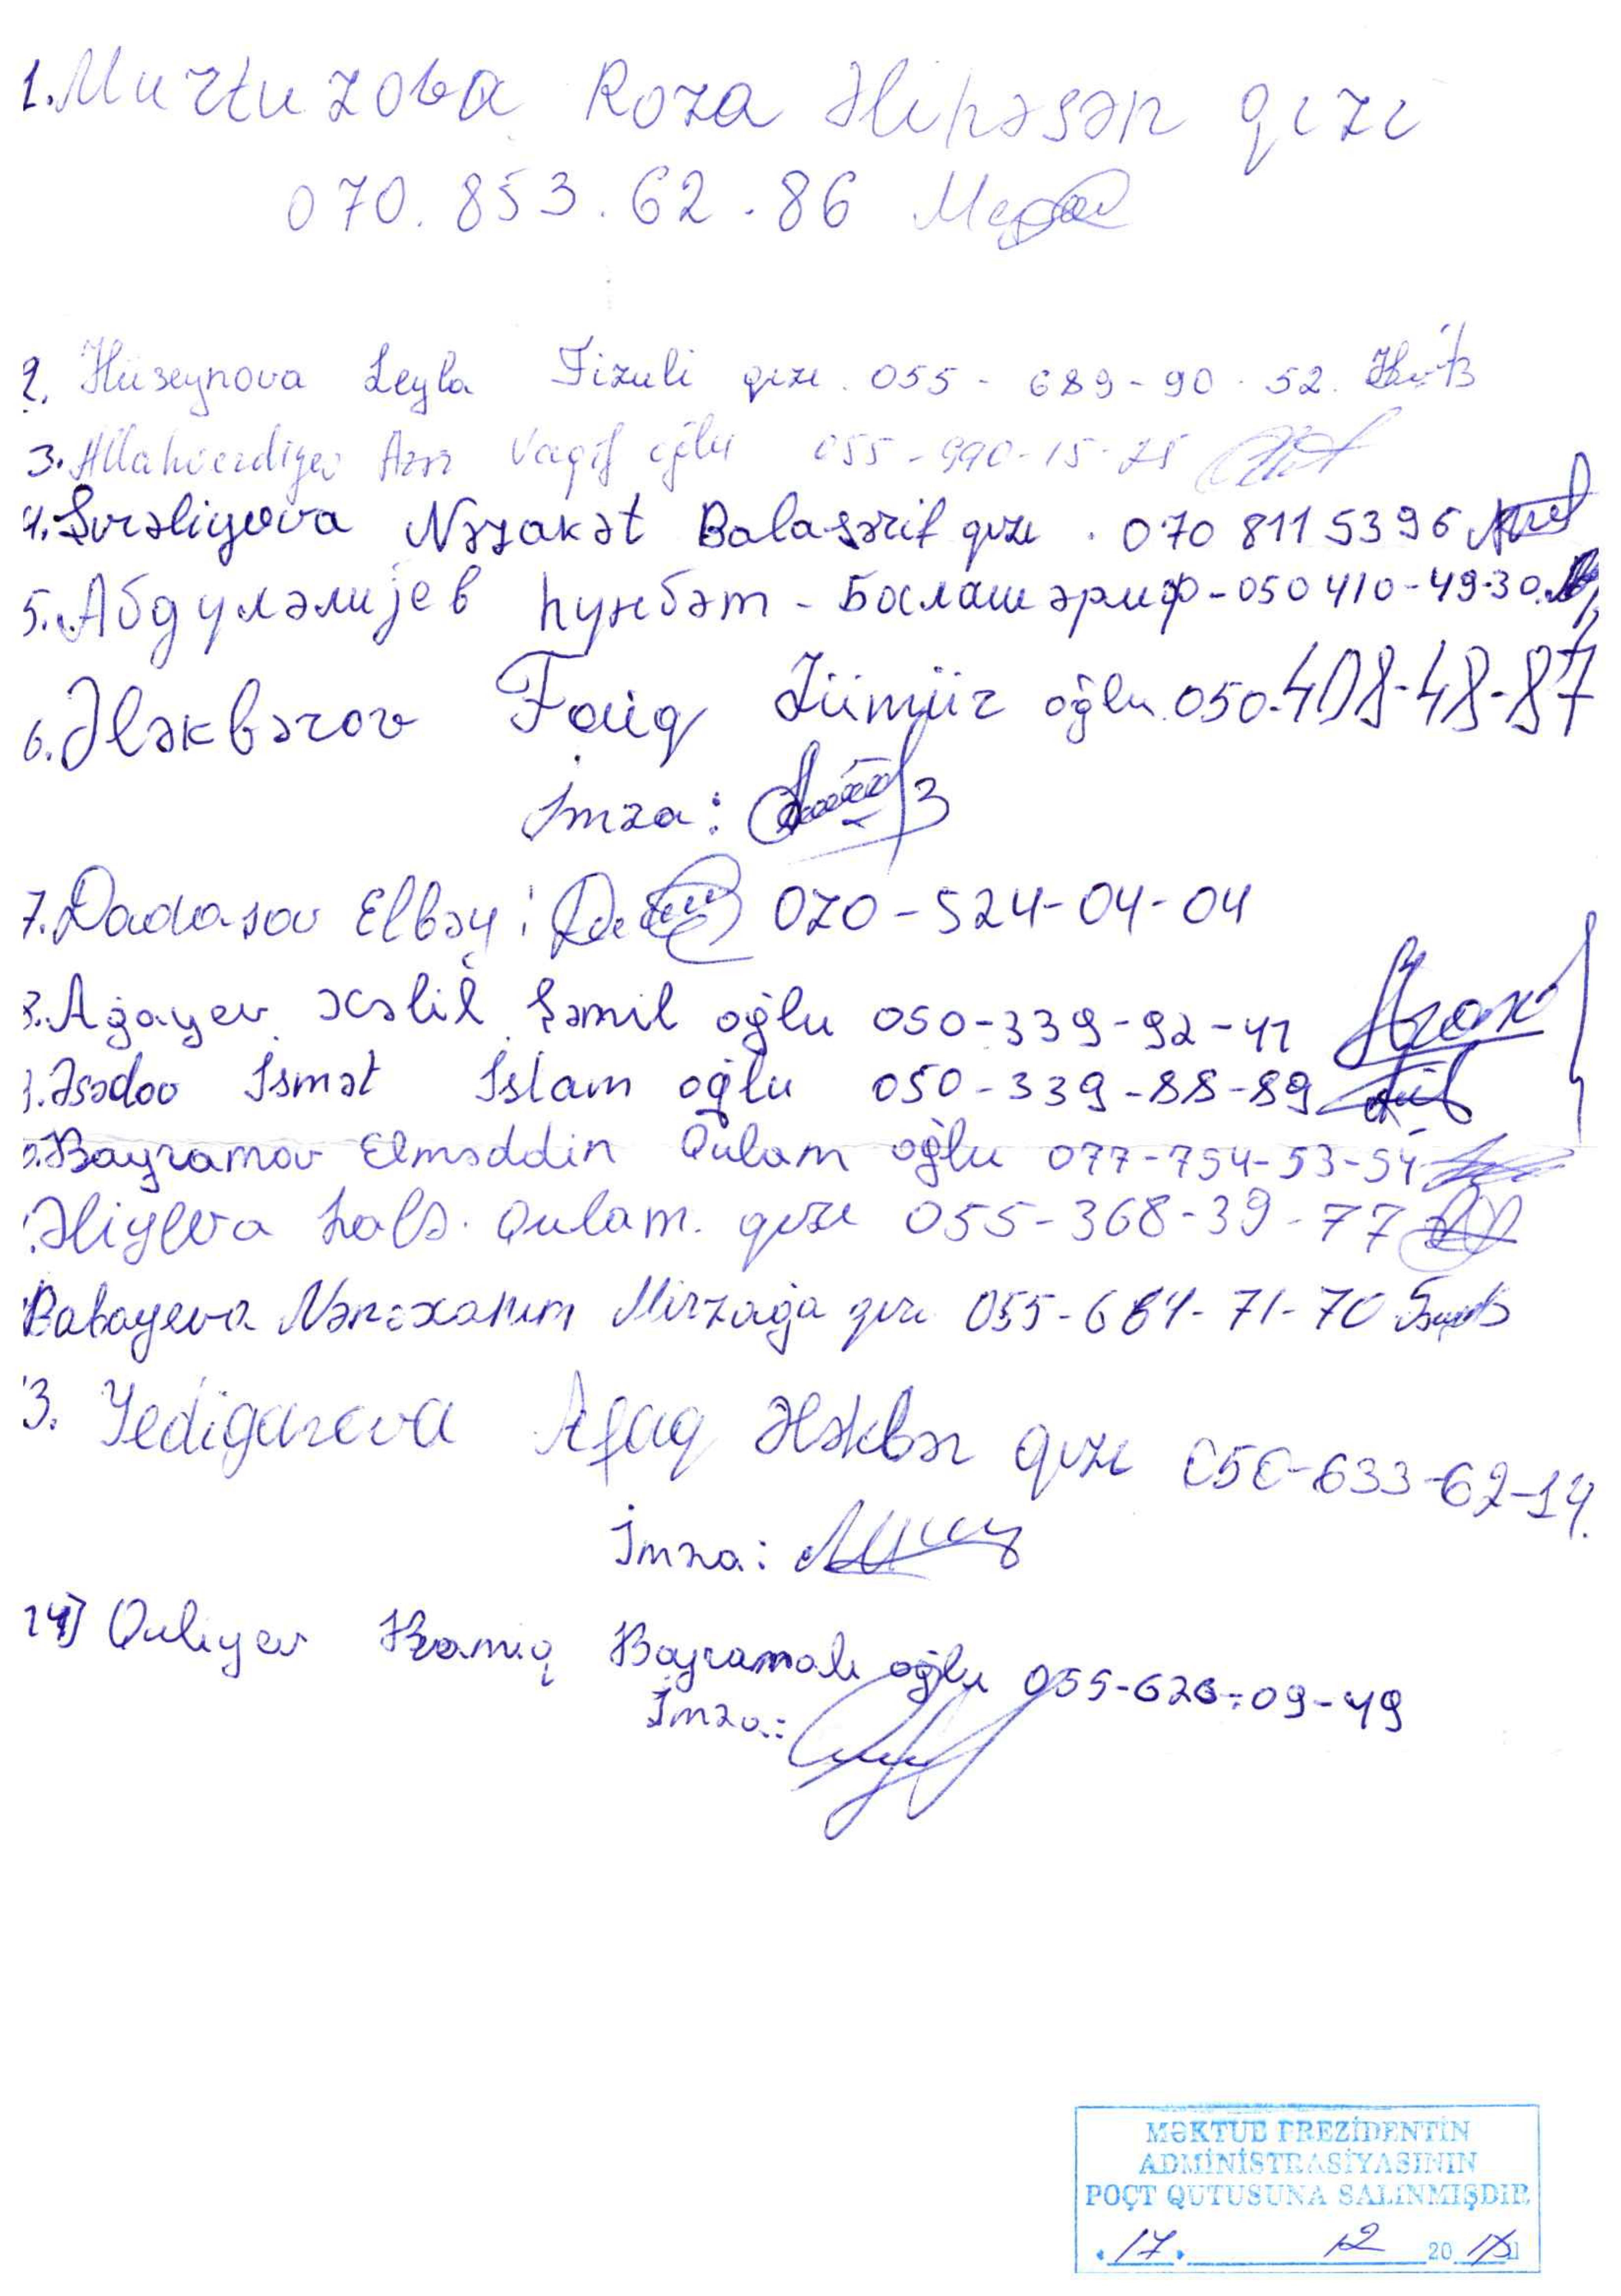 1. Murtuzova Roza Əlihəsən qızı
070. 853. 62. 86
2. Hüseynova Leyla Fizuli qızı. 055 - 689 - 90 - 52.
3. Allahverdiyev Azər Vaqif oğlu 055 - 990 - 15 -
4. Şirəliyeva Nəzakət Balaşərif qızı. 070 811 5396
5. Абдулəлиjев Һүнбəт - Балашəриф - 050 410-49-30.
6. Ələkbərov Faiq Zümür oğlu. 050-408-48-87
İmza:
7. Dadasov Elbəy: 070-524-04-04
8. Ağayev Xəlil Şəmil oğlu 050-339-92-41
Əsədov İsmət İslam oğlu 050-339-88-89
Bayramov Elməddin Qulam oğlu 077-754-53-54
Əliyeva Qulam. qızı 055-368-39-77
Babayeva Nənəxanım Mirzağa qızı 055-684-71-70
3. Yediqarova Afaq Ələkbər qızı 050-633-62-14.
İmza:
14) Quliyev Ramiq Bayraməlı oğlu 055-626-09-49
İmza:
MƏKTUB PREZİDENTİN
ADMİNİSTRASİYASININ
POÇT QUTUSUNA SALINMIŞDIR
"17" 12 20